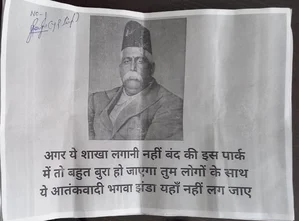 अगर ये शाखा लगानी नहीं बंद की इस पार्क
में तो बहुत बुरा हो जाएगा तुम लोगों के साथ
ये आतंकवादी भगवा झंडा यहाँ नहीं लग जाए